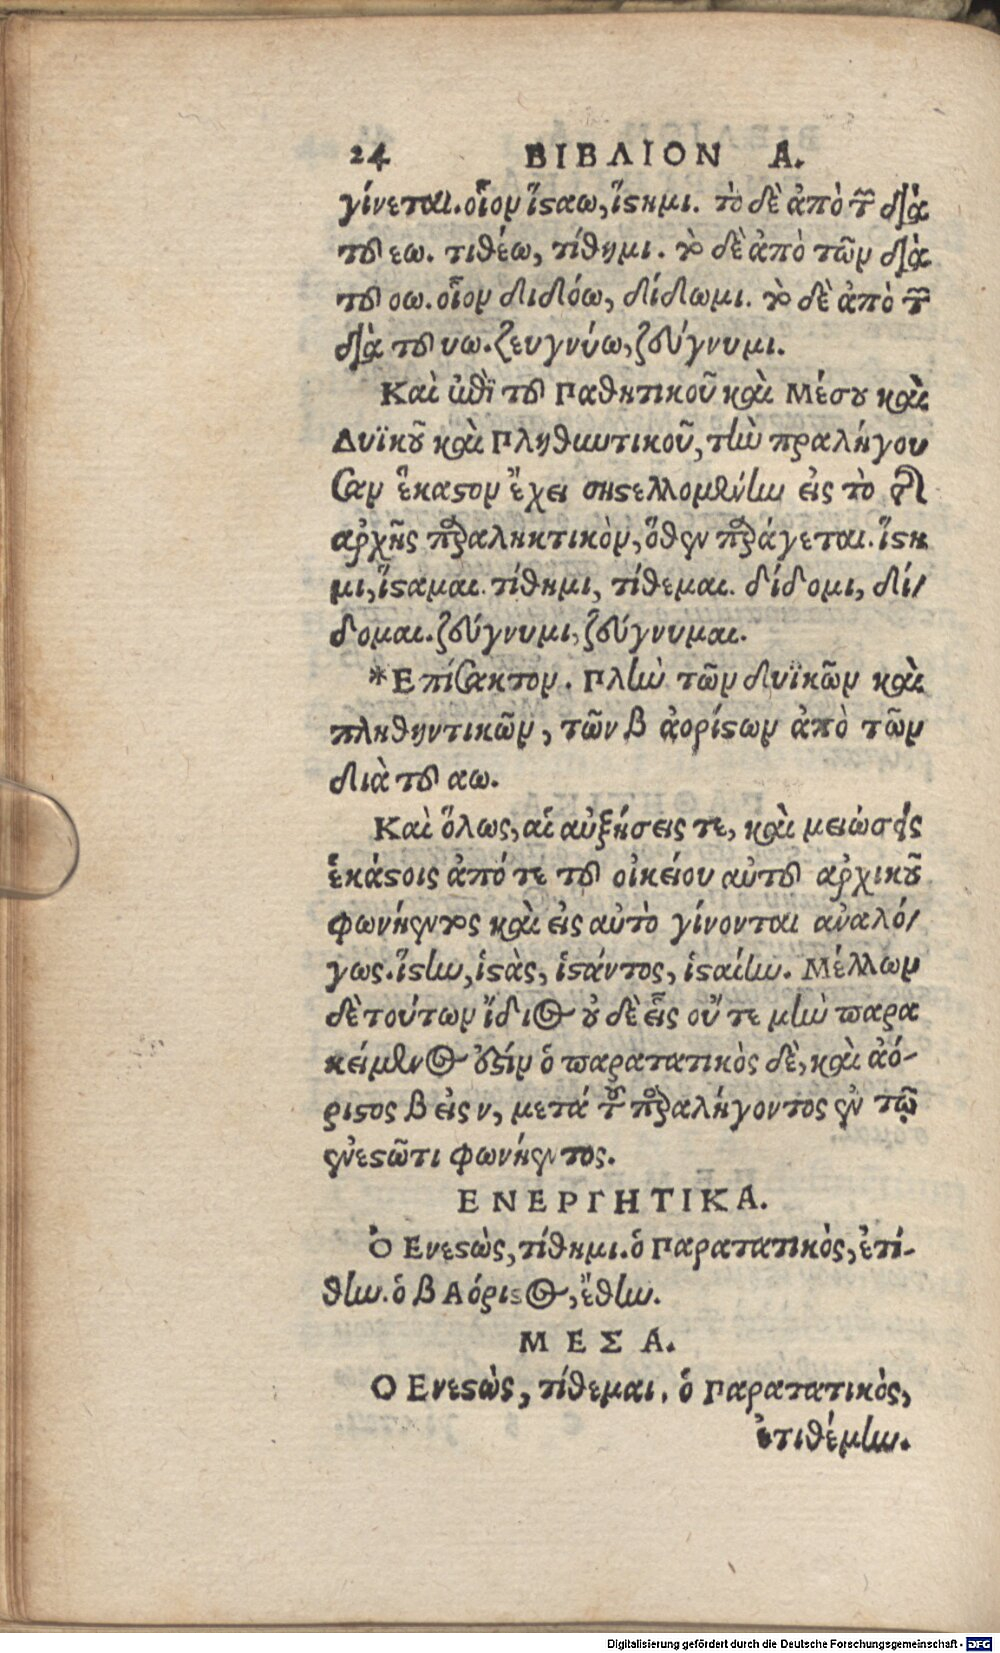 24 ΒΙΒΛΙΟΝ Α.
γίνεται. οἷον ἵσαω, ἵστημι. τὸ δὲ ἀπὸ τῶν διὰ
τοῦ εω. τιθέω, τίθημι. τὸ δὲ ἀπὸ τῶν διὰ
τοῦ οω. οἷον διδόω, δίδωμι. τὸ δὲ ἀπὸ τῶν
διὰ τοῦ υω. ζευγνύω, ζεύγνυμι.
Καὶ ἐπὶ τοῦ Παθητικοῦ καὶ Μέσου καὶ
Δυϊκοῦ καὶ Πληθωτικοῦ, τὴν παραλήγου
σαν ἕκαστον ἔχει συστελλομένην εἰς τὸ
ἀρχῆς παραληκτικὸν, ὅθεν παράγεται. ἵστη
μι, ἵσταμαι. τίθημι, τίθεμαι. δίδομι, δί/
δομαι. ζεύγνυμι, ζεύγνυμαι.
*Επίσακτον. Πλὴν τῶν δυϊκῶν καὶ
πληθηντικῶν, τῶν β ἀορίστων ἀπὸ τῶν
διὰ τοῦ αω.
Καὶ ὅλως, αἱ αὐξήσεις τε, καὶ μειώσεις
ἑκάστοις ἀπό τε τοῦ οἰκείου αὐτοῦ ἀρχικοῦ
φωνήεντος καὶ εἰς αὐτὸ γίνονται αναλό/
γως. ἵστην, ἱστὰς, ἱστάντος, ἱσταίην. Μέλλων
δὲ τούτων ἴδιος οὐδὲ εἷς οὔτε μὴν παρα
κείμενος ἐστίν ὁ παρατατικὸς δὲ, καὶ ἀό-
ριστος β εἰς ν, μετά τοῦ παραλήγοντος ἐν τῷ
ἐνεστῶτι φωνήεντος.
ΕΝΕΡΓΗΤΙΚΑ.
Ὁ Ενεστὼς, τίθημι. ὁ Παρατατικὸς, ἐτί-
θην. ὁ β Αόριστος, ἔθην.
ΜΕΣΑ.
Ο Ενεστὼς, τίθεμαι. ὁ Παρατατικὸς,
ἐτιθέμην.
Digitalisierung gefördert durch die Deutsche Forschungsgemeinschaft - DFG